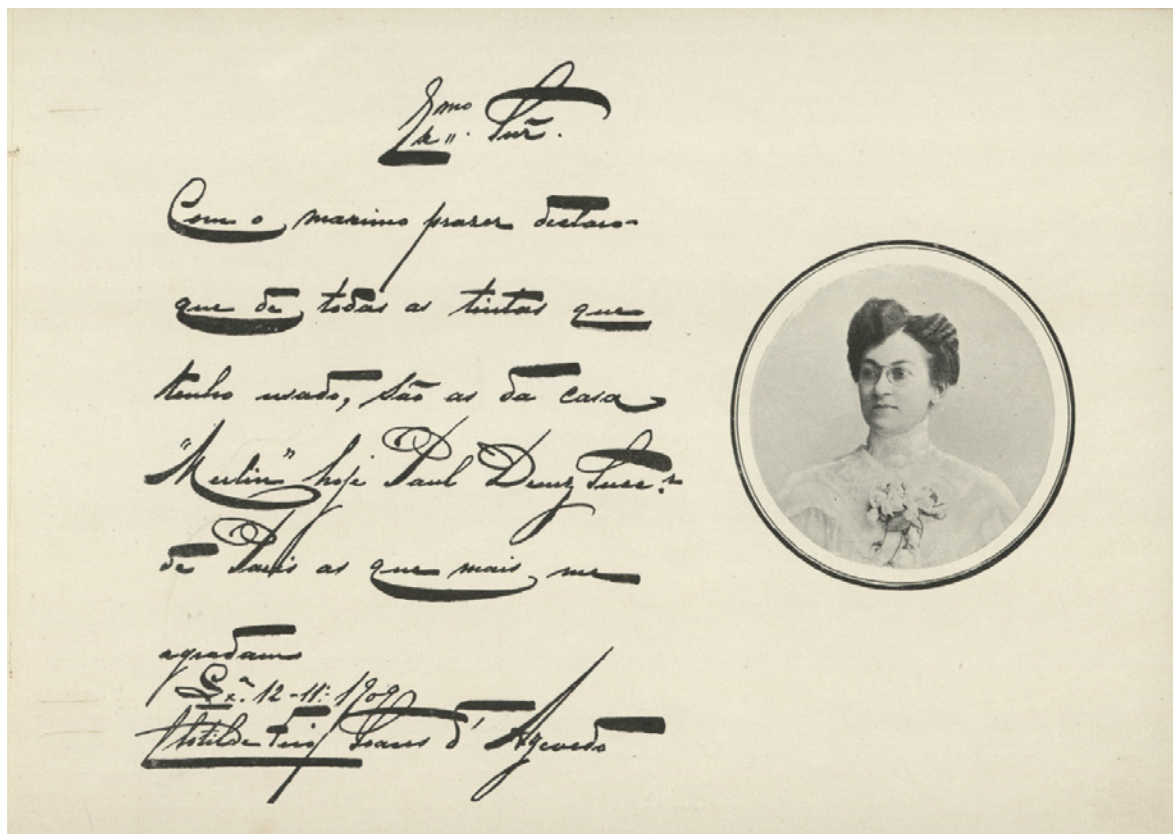 Exmo Snr.
Com o maximo prazer declaro
que de todas as tintas que
tenho usado, são as da casa
"Merlin" hoje Paul Deuz Succ.r
de Paris as que mais me
agradam
Lx.a 12-11.º 1909
Clotilde Soares d'Azevedo